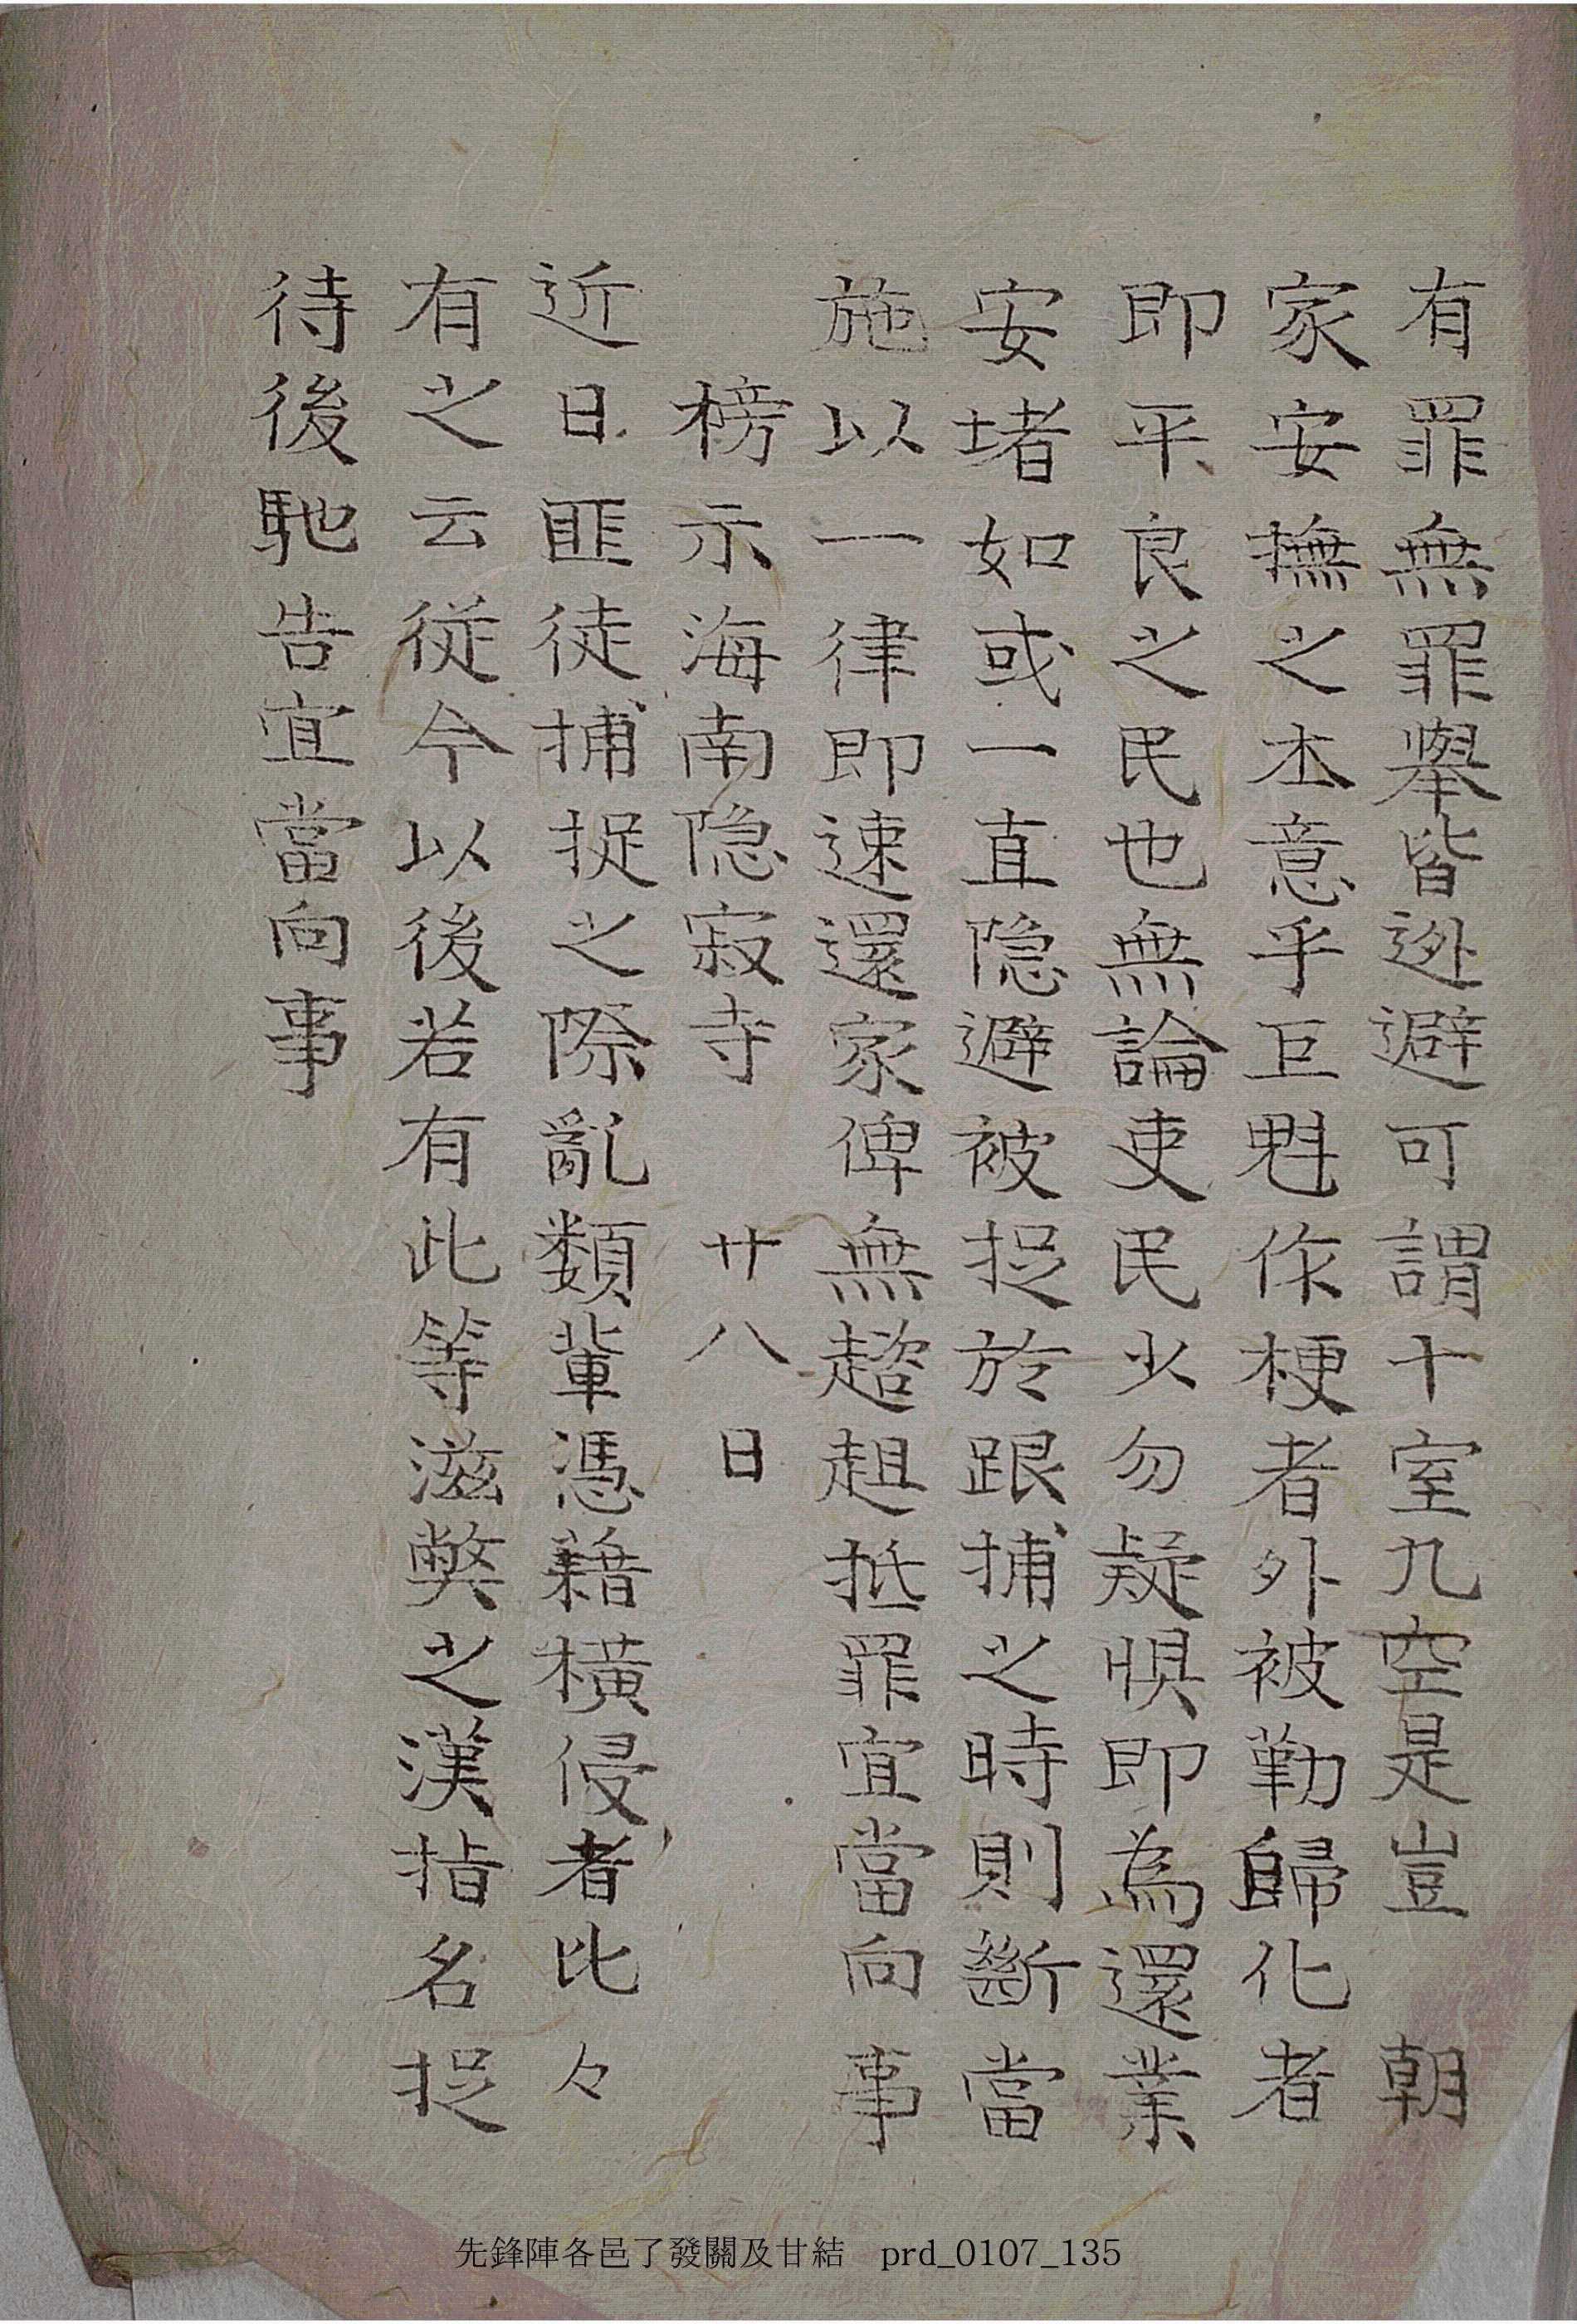 有罪無罪擧皆迯避可謂十室九空是豈　朝
家安撫之本意乎巨魁作梗者外被勒歸化者
即平良之民也無論吏民少勿疑懼即爲還業
安堵如或一直隐避被捉於跟捕之時則斷當
施以一律即速還家俾無趦趄抵罪宜當向事
榜示海南隐寂寺　廿八日
近日匪徒捕捉之際亂類輩憑藉橫侵者比々
有之云從今以後若有此等滋弊之漢指名捉
待後馳告宜當向事
先鋒陣各邑了發關及甘結 prd_0107_135